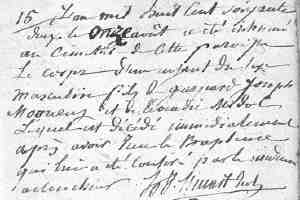 15 L'an mil huit cent soixante
deux le onze août a été inhumé
au Cimetière de Cette paroisse
Le corps d'un enfant du sex
masculin fils de Gaspard Joseph
et de
Lequel est décédé immédiatement
après avoir reçu le Baptême
qui lui a été Conféré par le medecin
accoucheur